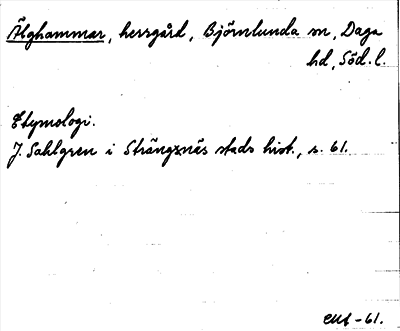 Älghammar, herrgård, Björnlunda sn, Daga
hd, Söd. l.
Etymologi.
J. Sahlgren i Strängnäs stads hist., s. 61.
-61.